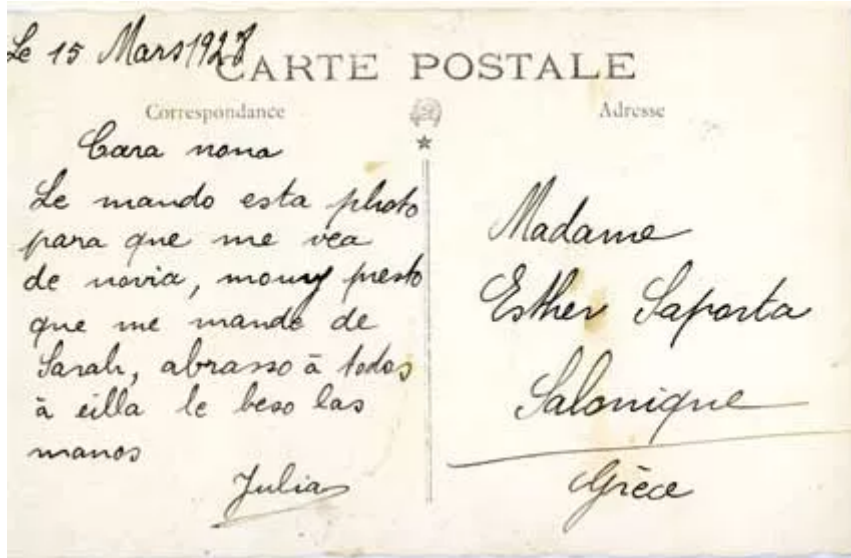 Le 15 Mars 1927
CARTE POSTALE
Correspondance
Adresse
Cara nona
Le mando esta photo
para que me vea
de novia, mouy presto
que me mande de
Sarah, abrasso à todos
à eilla le beso las
manos
Julia
Madame
Esther Saporta
Salonique
Grèce